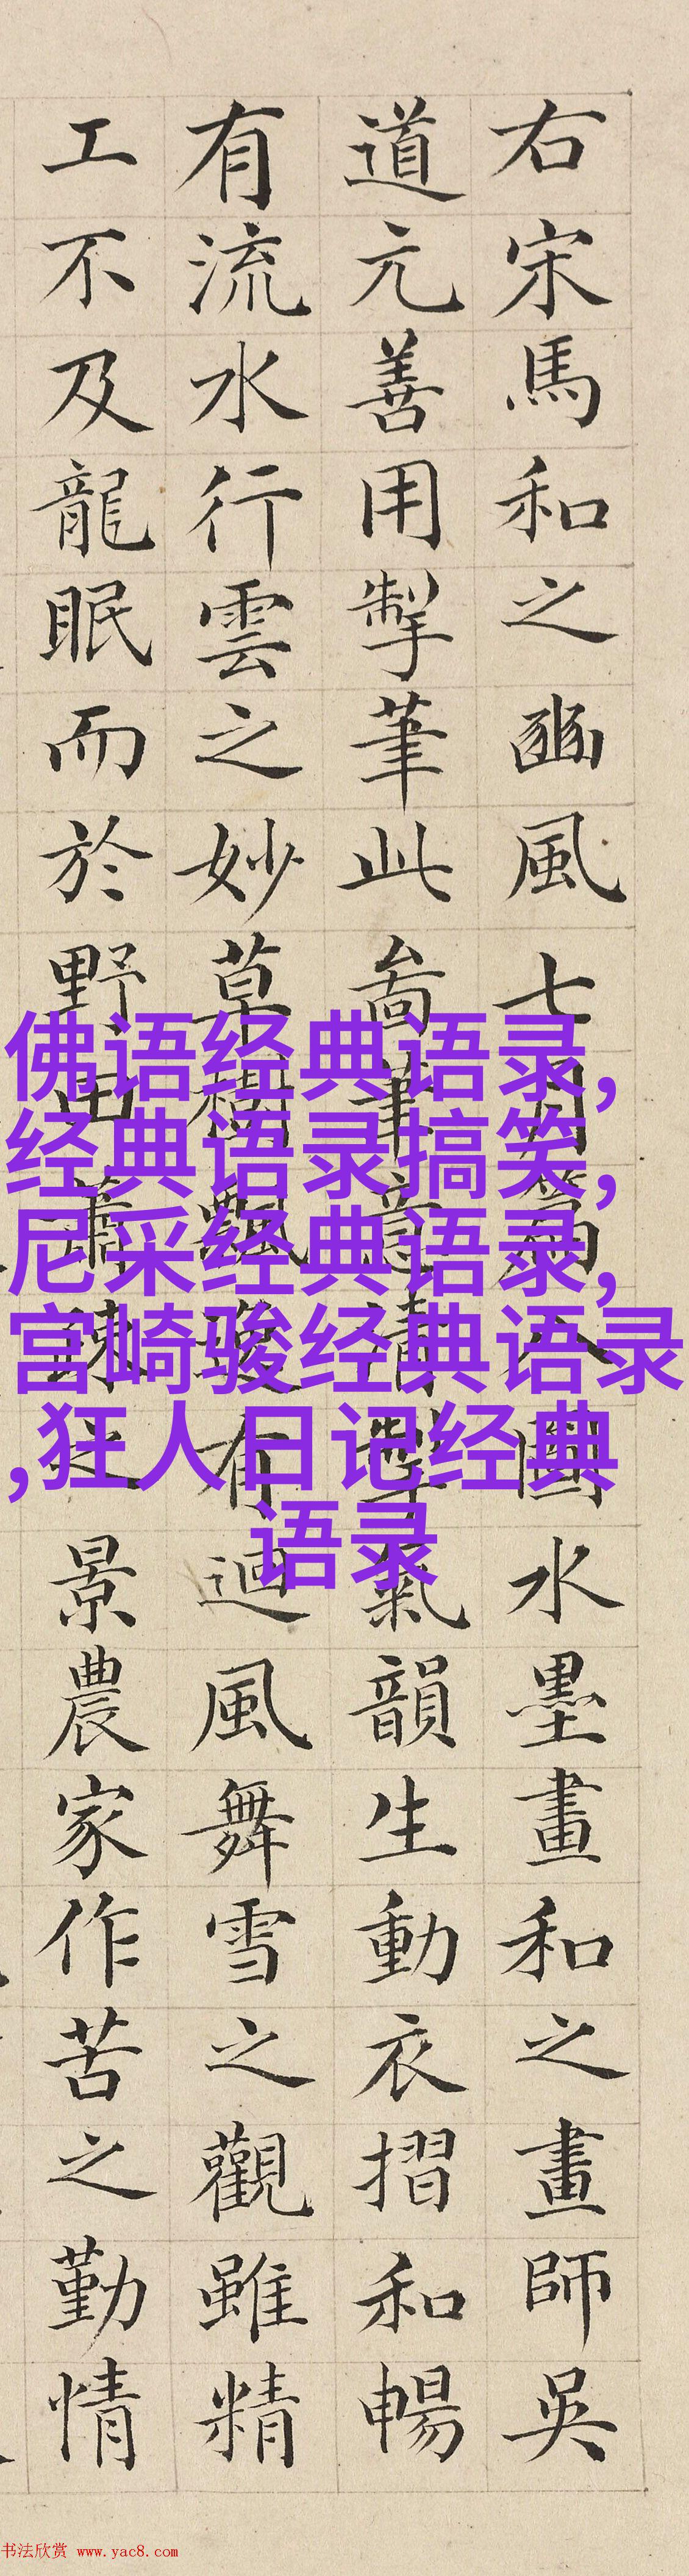 右宋馬和之豳風七月篇八圖水墨畫和之畫師吳
道元善用掣筆此啚筆意清氣韻生動衣摺和暢
有流水行雲之妙草樹飄有迴風舞雪之觀雖精
工不及龍眠而於野田蕭疎之景農家作苦之勤情
佛语经典语录,
经典语录搞笑,
尼采经典语录,
宫崎骏经典语录
,狂人日记经典
语录
书法欣赏 www.yac8.com